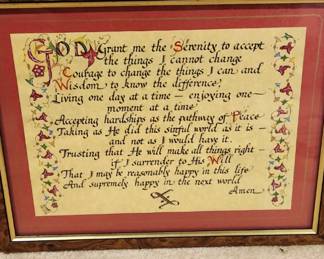 GOD, grant me the Serenity to accept
the things I cannot change
Courage to change the things I can and
Wisdom to know the difference;
Living one day at a time — enjoying one
moment at a time;
Accepting hardships as the pathway of Peace
Taking as He did this sinful world as it is —
and not as I would have it.
Trusting that He will make all things right —
if I surrender to His Will
That I may be reasonably happy in this life
And supremely happy in the next world
Amen